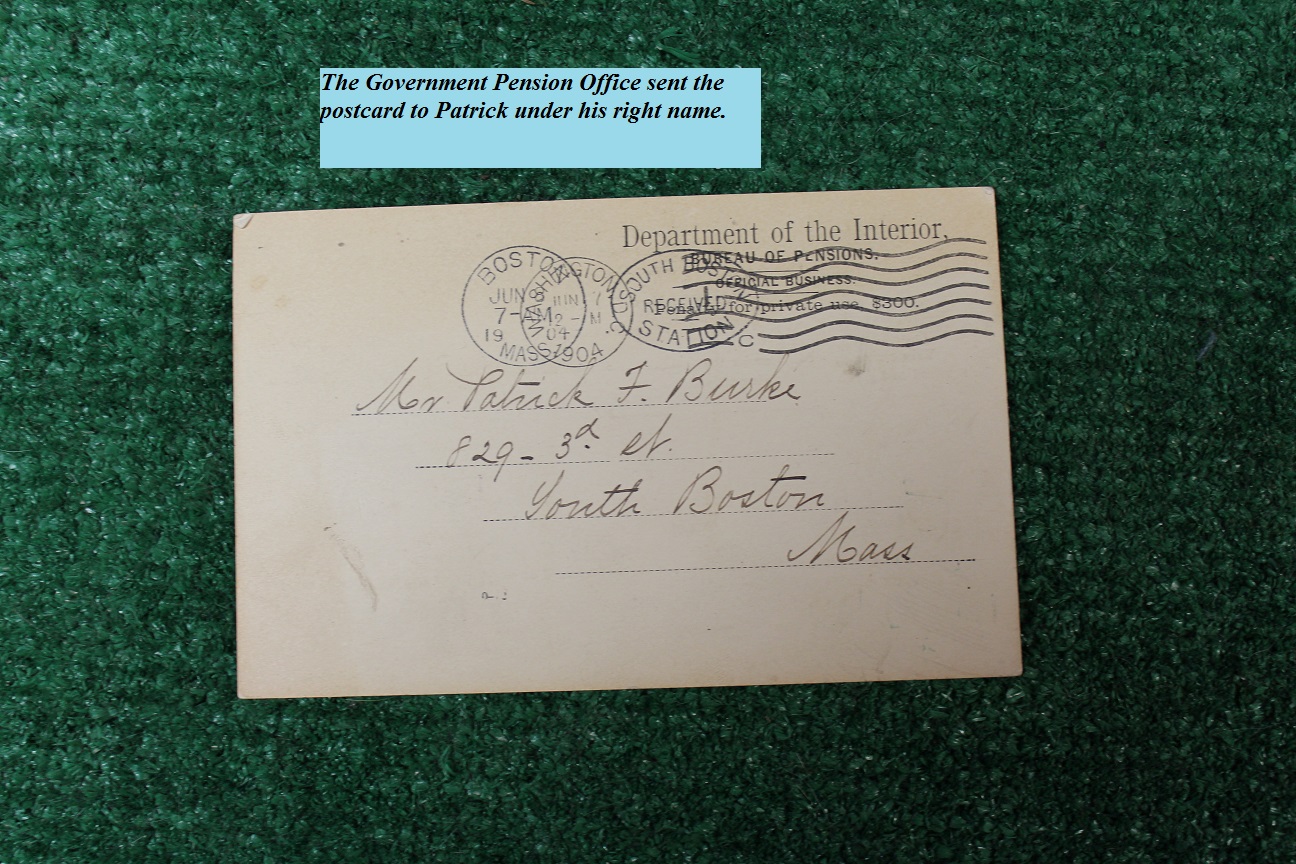 The Government Pension Office sent the
postcard to Patrick under his right name.
Department of the Interior,
BUREAU OF PENSIONS.
OFFICIAL BUSINESS.
Penalty for private use, $300.
BOSTON
JUN 8
7-AM
19 04
MASS.
WASHINGTON, D.C.
JUN 7
12-M
1904
SOUTH BOSTON
RECEIVED
STATION
C
Mr Patrick F. Burke
829 - 3d St.
South Boston
Mass